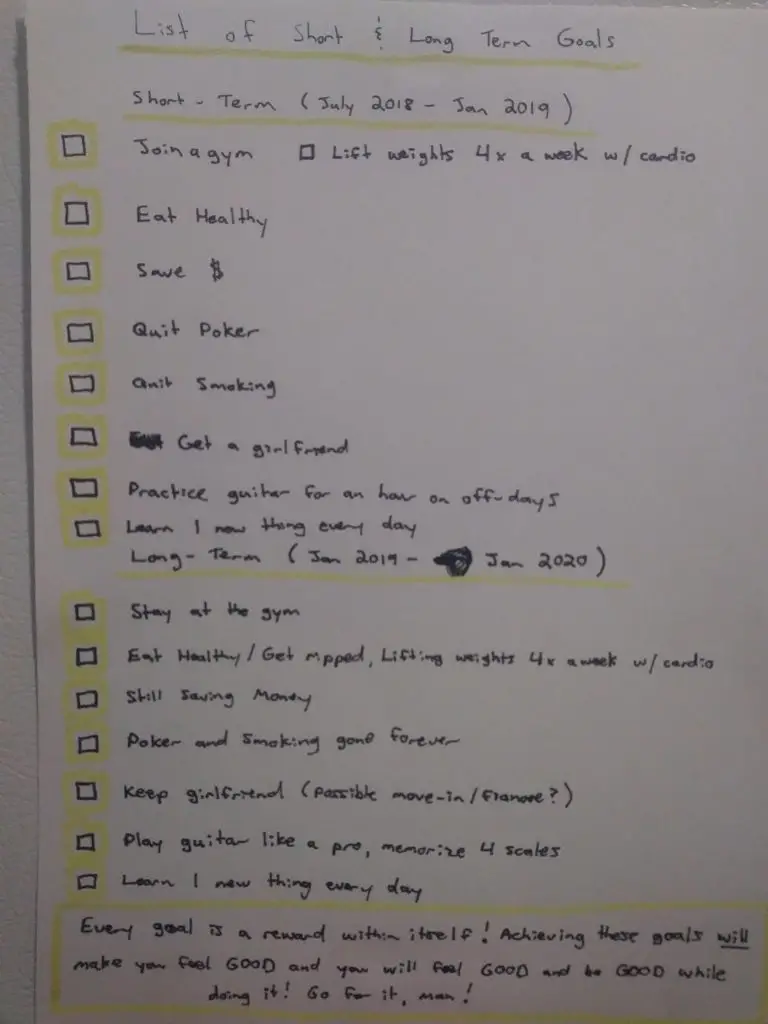 List of Short & Long Term Goals
Short-Term (July 2018 - Jan 2019)
Join a gym Lift weights 4x a week w/ cardio
Eat Healthy
Save $
Quit Poker
Quit Smoking
Get a girlfriend
Practice guitar for an hour on off-days
Learn 1 new thing every day
Long-Term (Jan 2019 - Jan 2020)
Stay at the gym
Eat Healthy/Get ripped, Lifting weights 4x a week w/ cardio
Still saving Money
Poker and smoking gone forever
Keep girlfriend (possible move-in/fianove?)
Play guitar like a pro, memorize 4 scales
Learn 1 new thing every day
Every goal is a reward within itself! Achieving these goals will
make you feel GOOD and you will feel GOOD and be GOOD while
doing it! Go for it, man!